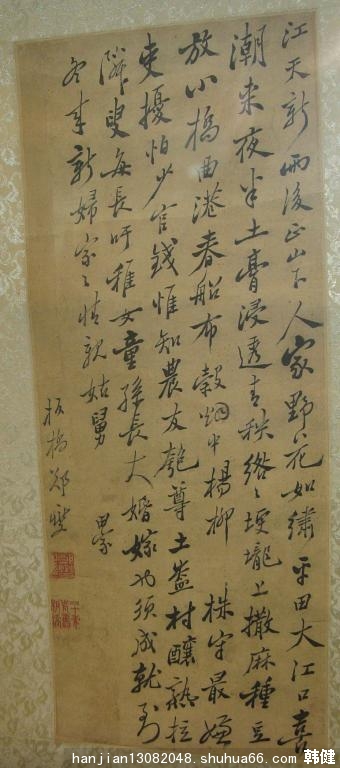 江天新雨後正山下人家野花如繡平田大江口喜
潮來夜半土膏浸透青秧綹々埂壠上撒麻種豆
放小橋曲港春船布穀烟中楊柳 株守最嫌
吏擾怕少官錢惟知農友匏尊土盎村釀熟拉
隣叟每長吁稚女童孫長大婚嫁也須成就到
冬來新婦家々情親姑舅
田家
板橋鄭燮
hanjian13082048.shuhua66.com 韩健